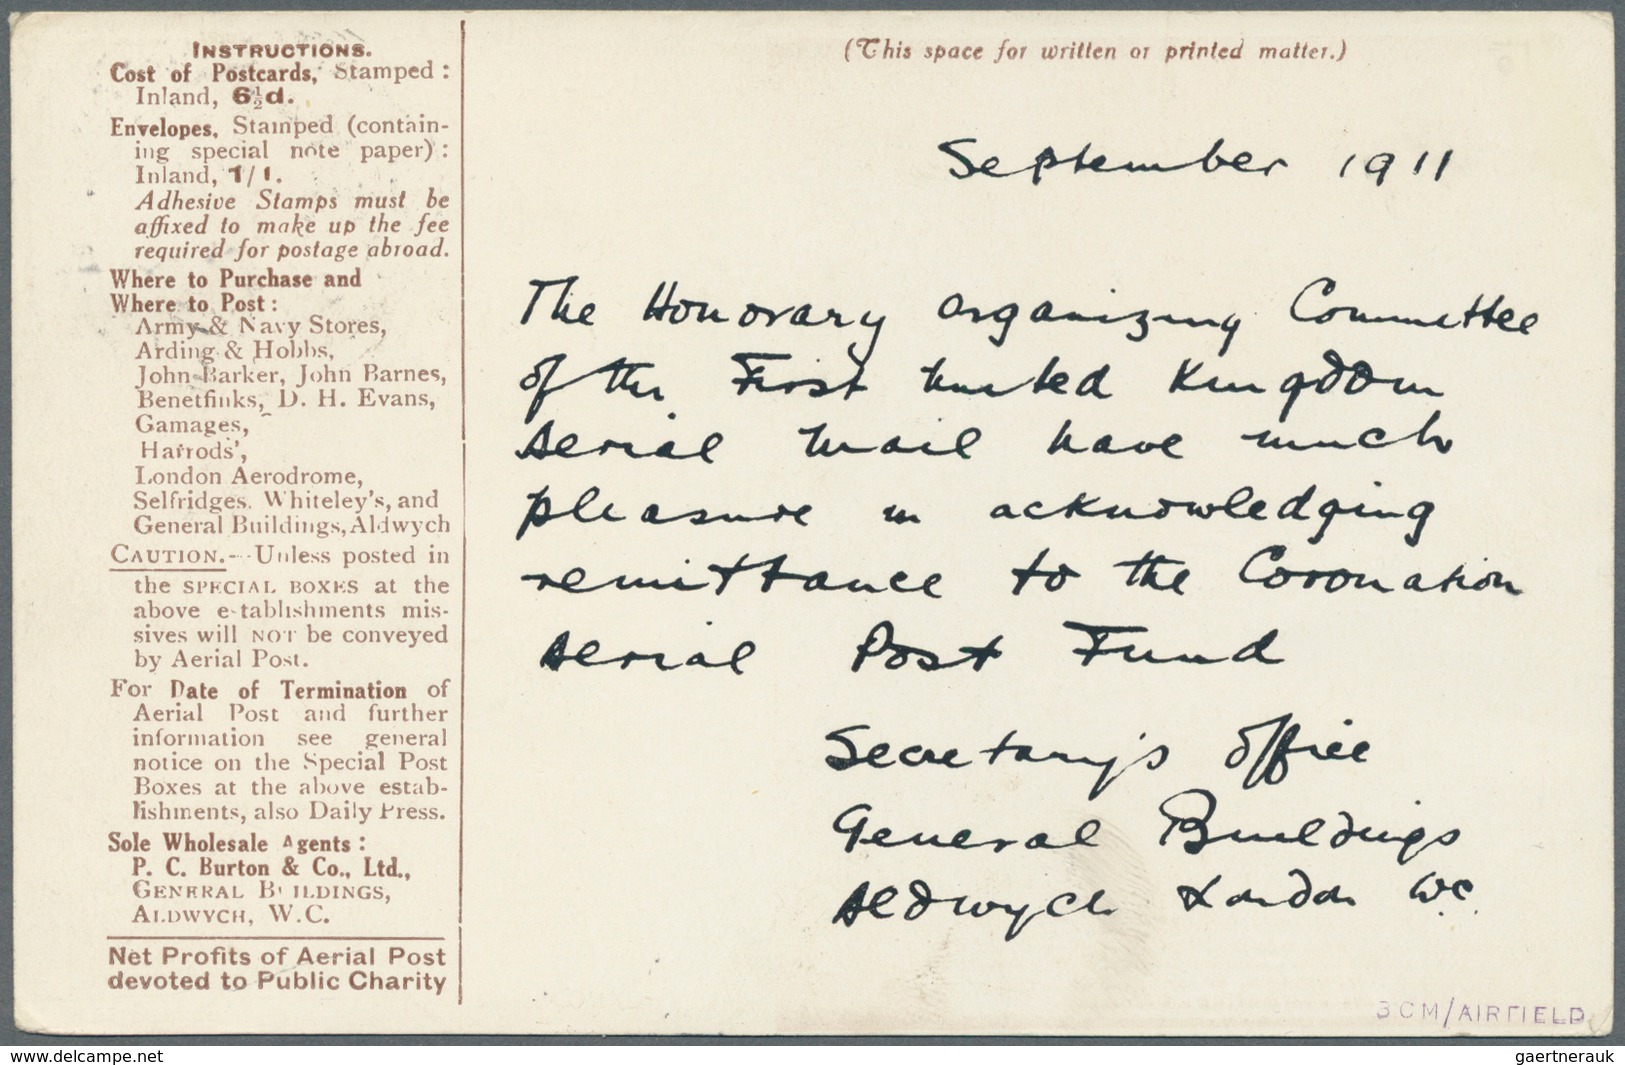 INSTRUCTIONS.
Cost of Postcards, Stamped:
Inland, 6½d.
Envelopes, Stamped (contain-
ing special note paper):
Inland, 1/1.
Adhesive Stamps must be
affixed to make up the fee
required for postage abroad.
Where to Purchase and
Where to Post:
Army & Navy Stores,
Arding & Hobbs,
John Barker, John Barnes,
Benetfinks, D. H. Evans,
Gamages,
Harrods',
London Aerodrome,
Selfridges, Whiteley's, and
General Buildings, Aldwych
CAUTION.—Unless posted in
the SPECIAL BOXES at the
above establishments mis-
sives will NOT be conveyed
by Aerial Post.
For Date of Termination of
Aerial Post and further
information see general
notice on the Special Post
Boxes at the above estab-
lishments, also Daily Press.
Sole Wholesale Agents:
P. C. Burton & Co., Ltd.,
GENERAL BUILDINGS,
ALDWYCH, W.C.
Net Profits of Aerial Post
devoted to Public Charity
(This space for written or printed matter.)
September 1911
The Honorary organizing Committee
of the First United Kingdom
Aerial Mail have much
pleasure in acknowledging
remittance to the Coronation
Aerial Post Fund
Secretary's Office
General Buildings
Aldwych London W.C.
BCM/AIRFIELD
www.delcampe.net
gaertnerauk